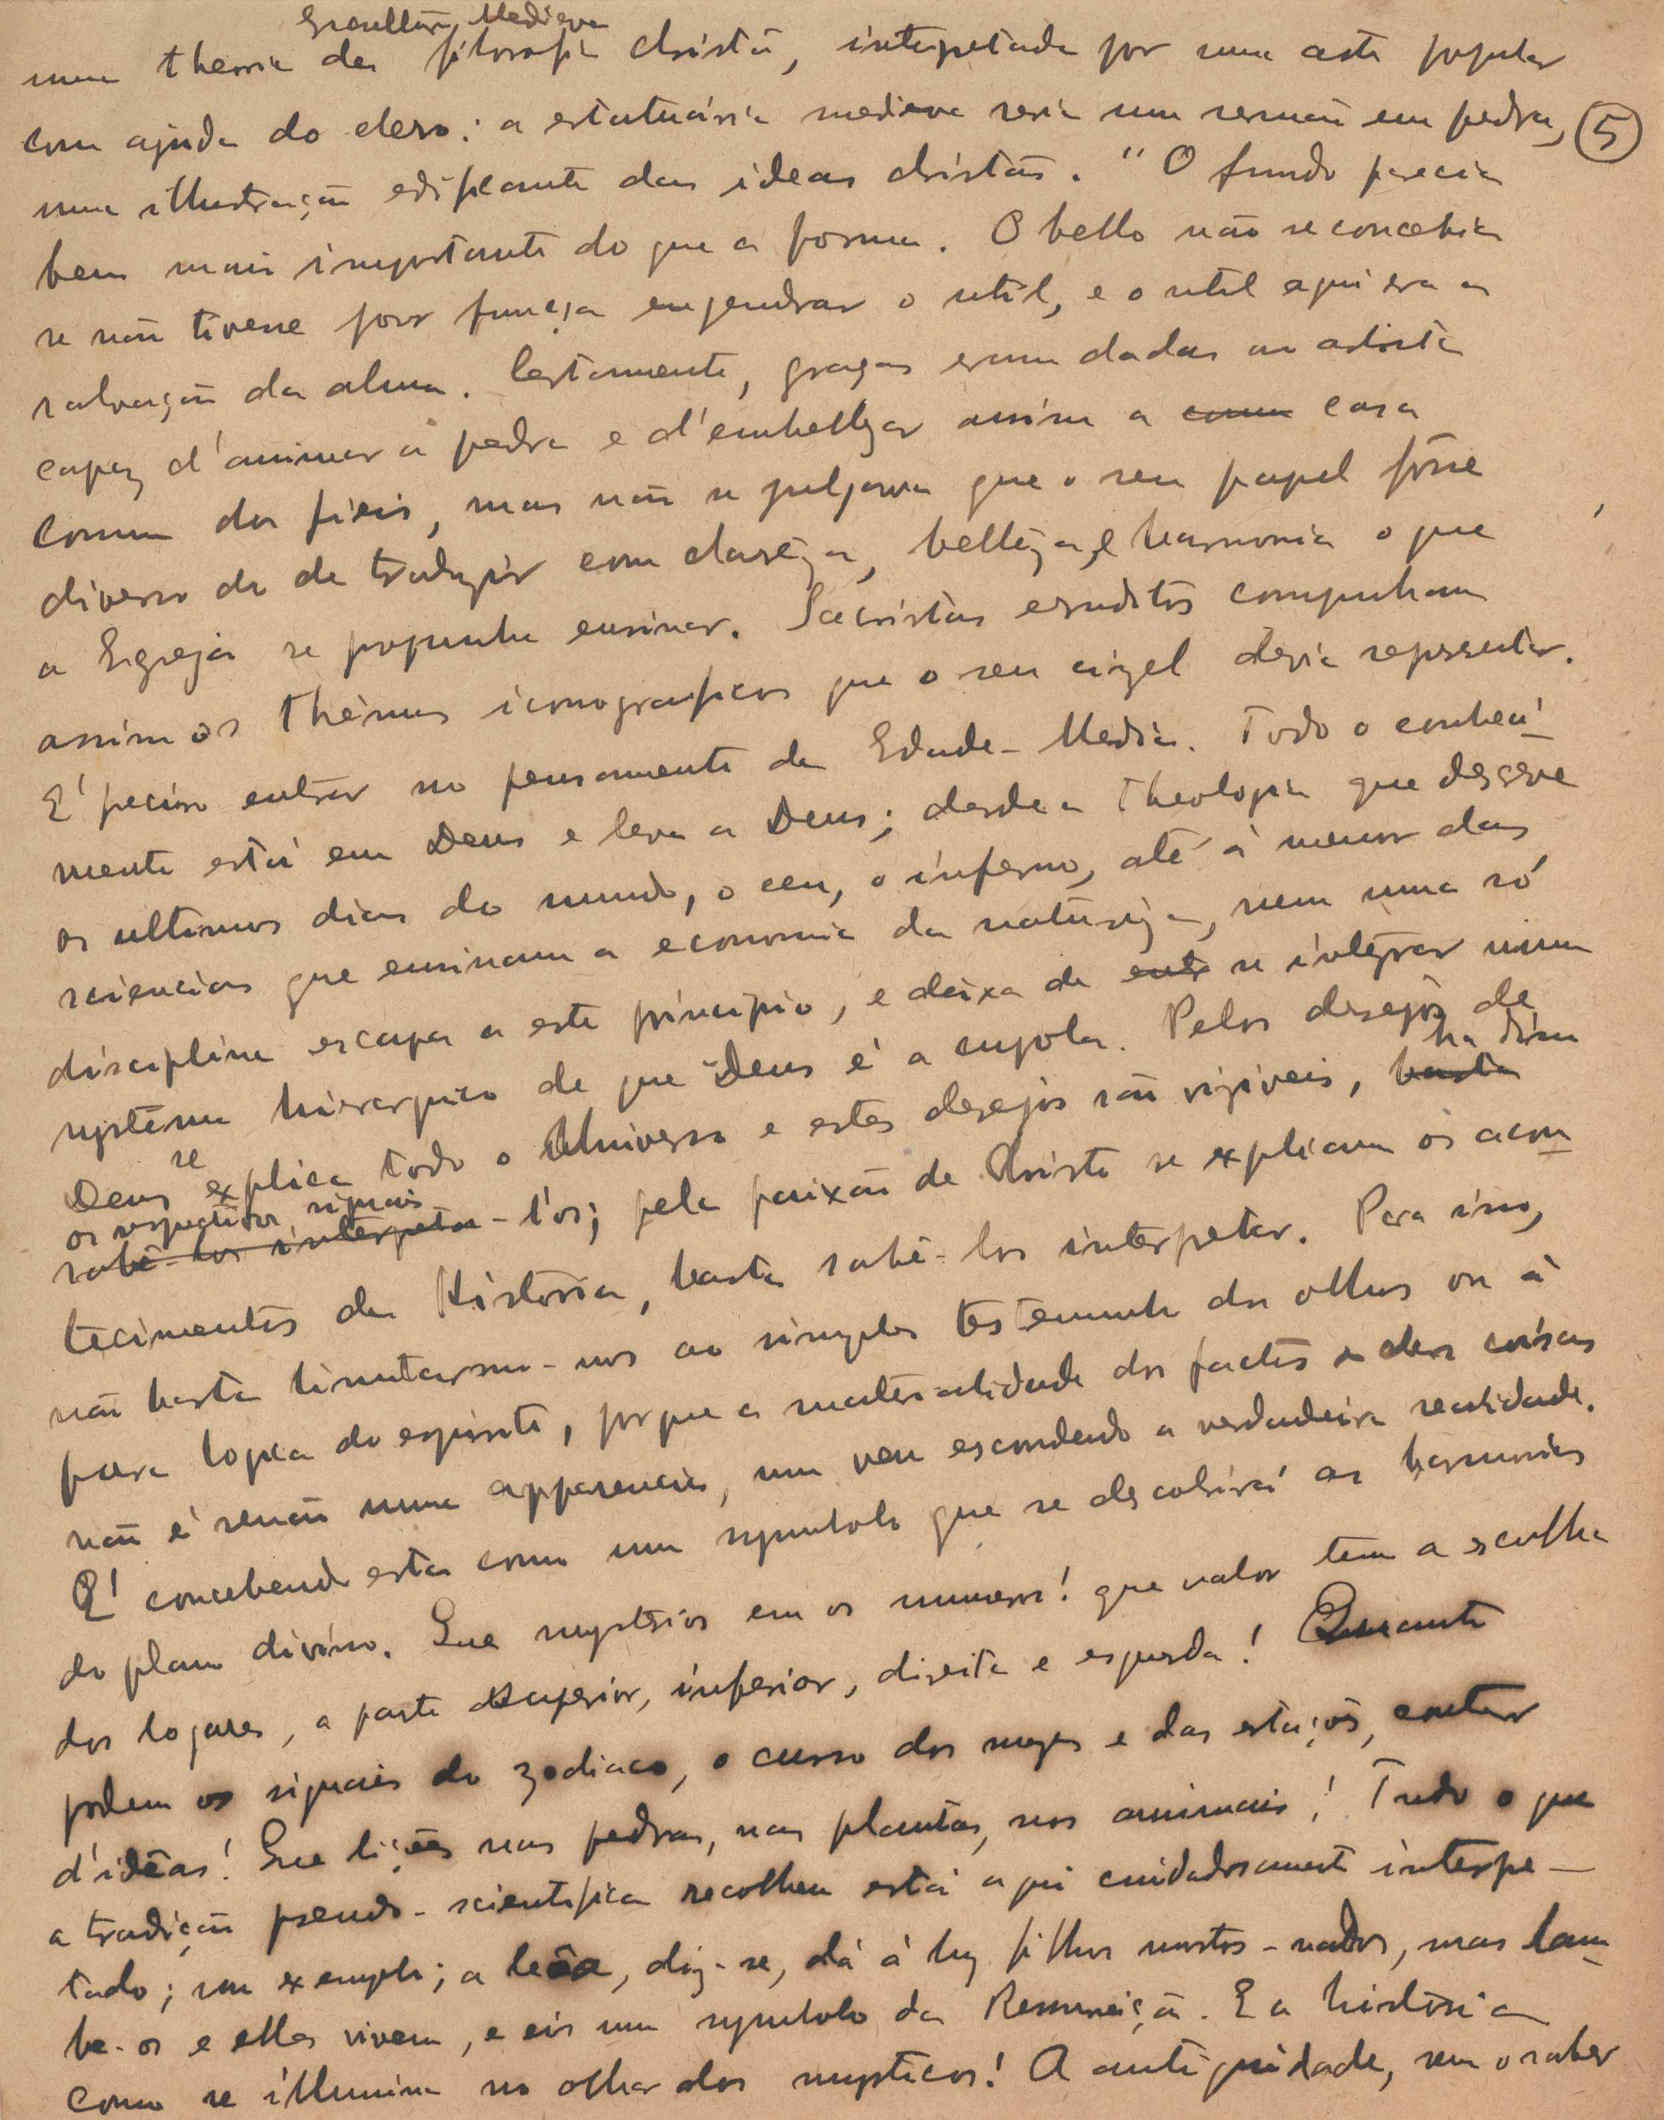 Esculltura Medieva
uma theoria da filosofia christã, interpetada por uma arte popular
com ajuda do clero: a estatuária medieva seria um sermão em pedra, 5
uma illustração edificante das ideas christãs. "O fundo parecia
bem mais importante do que a forma. O bello não se concebia
se não tivesse por funcça engendrar o util, e o util aqui era a
salvação da alma. Certamente, graças eram dadas ao artista
capaz d'animar a pedra e d'embellezar assim a casa
comum dos fieis, mas não se julgava que o seu papel fosse
diverso do de traduzir com clareza, belleza, e harmonia o que
a Egreja se propunha ensinar. Sacristas eruditos compunham
assim os thêmas iconograficos que o seu cizel devia representar.
E' preciso entrar no pensamento da Edade-Media. Todo o conheci-
mento está em Deus e leva a Deus; desde a Theologia que descreve
os ultimos dias do mundo, o ceu, o inferno, até á menor das
sciencias que ensinam a economia da natureza, nem uma só
disciplina escapa a este principio, e deixa de se integrar num
systema hierarquico de que Deus é a cupola. Pelos desejos de
Deus se explica todo o Universo e estes desejos são visiveis, ha disso
os respectivos signais
sabê-los interpetar-l'os; pela paixão de Christo se explicam os acon-
tecimentos da Historia, basta sabê-los interpetar. Para isso,
não basta limitarmo-nos ao simples testemunho dos olhos ou á
pura logica do espirito, porque a materialidade dos factos e das coisas
não é senão uma apparencia, um veu escondendo a verdadeira realidade.
E' concebendo esta como um symbolo que se descobrirá as harmonias
do plano divino. Que mysterios em os numeros! que valor tem a escolha
dos logares, a parte superior, inferior, direita e esquerda! Quanto
podem os signaes do zodiaco, o curso dos mezes e das estações, conter
d'idêas! Que lições nas pedras, nas plantas, nos animais! Tudo o que
a tradição pseudo-scientifica recolheu está aqui cuidadosamente interpe-
tado; um exemplo; a leôa, diz-se, dá á luz filhos mortos-nados, mas lam-
be-os e elles vivem, e eis um symbolo da Resurreição. E a historia
como se illumina no olhar dos mysticos! A antiguidade, sem o saber